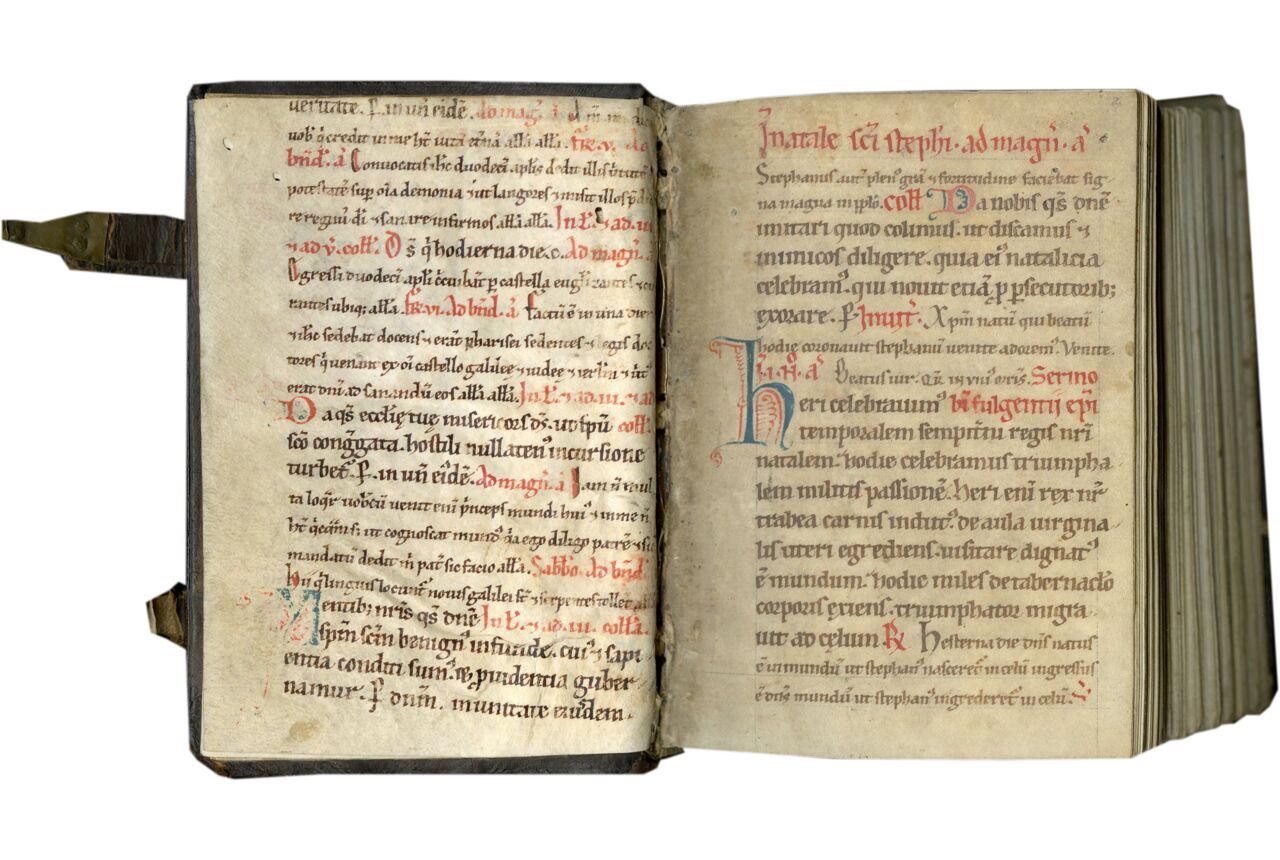 veritate. P. in un̄ eidē. ad magn̄. a
uob̄ q̄ credit in me ht̄ uitā etnā all'a all'a. fr̄. v. Ad
bn̄d'. a Conuocatis ihc duodeci aplis dedit illis uirtutē
potestatē sup oīa demonia ⁊ ut langores ⁊ misit illos p̄d
re regnū dī ⁊ sanare infirmos all'a all'a. In t̄. ⁊ ad. iii
⁊ ad v̄. coll'. Ds̄ q̄ hodierna die. Ad magn̄. a
Egressi duodeci apl'i c̄cuibāt p castella eug̃lizantes ⁊ cu
rantes ubiq; all'a. fr̄. vi. Ad bn̄d. a Factū ē in una dier
⁊ ihc sedebat docens ⁊ erāt pharisei sedentes ⁊ legis doc
tores q̄ uenant ex oī castello galilee ⁊ iudee ⁊ ierl'm ⁊ uirt'
erat dn̄i ad sanandū eos all'a all'a. In t̄. ⁊ ad. iii. ⁊ ad
Da qs̄ eccl'ię tuę misericors ds̄. ut sp̄u coll'a
sc̄o cong̃gata. hostili nullaten⁹ incursione
turbet᷑. P. in un̄ ei⁹dē. Ad magn̄. a Iam n̄ mul
ta loqr̄ uobcū uenit eni p̃nceps mundi hui⁹ ⁊ in me n̄
ht̄ q̄cq̄m; ut cognoscat mund⁹ q̄a ego diligo patrē ⁊ sic
mandatū dedit m̄ pat̄ sic facio all'a. Sabb̄o. Ad bn̄d.
hii q̄ linguis locunt᷑ nouis galilei st̄ ⁊ serpentes tollet all'a
Mentib; nr̄is qs̄ dn̄e In t̄. ⁊ ad. iii. coll'a.
sp̄m sc̄m benign⁹ infunde. cui⁹ ⁊ sapi
entia conditi sum⁹. ⁊ p̱uidentia guber
namur. P dnm̄. in unitate eiusdem.
In natale sc̄i steph̄i. ad magn̄. a
Stephanus aut̄ plen⁹ gr̄a ⁊ fortitudine faciebat sig
na magna in pplo. coll' Da nobis qs̄ dn̄e
imitari quod colimus. ut discamus ⁊
inimicos diligere. quia ei⁹ natalicia
celebram⁹. qui nouit etiā p̱ p̱secutorib;
exorare. P. Inuit᷑. Xpm̄ natū qui beatū
hodie coronauit stephanū uenite adorem⁹. Venite.
In. i. n̄. a Beatus uir. Q̄re. in un⁹ oris. Sermo
heri celebrauim⁹ bi fulgentii epi
temporalem sempit̄ni regis nr̄i
natalem. hodie celebramus triumpha
lem militis passionē. Heri eni rex nr̄
trabea carnis indut⁹. de aula uirgina
lis uteri egrediens. uisitare dignat⁹
ē mundum. hodie miles de tabernaclo
corporis exiens. triumphator migra
uit ad cęlum R̷ Hesterna die dn̄s natus
ē in mundū ut stephan⁹ nasceret᷑ in celū ingressus
ē dn̄s mundū ut stephan⁹ ingrederet᷑ in celū. V̷